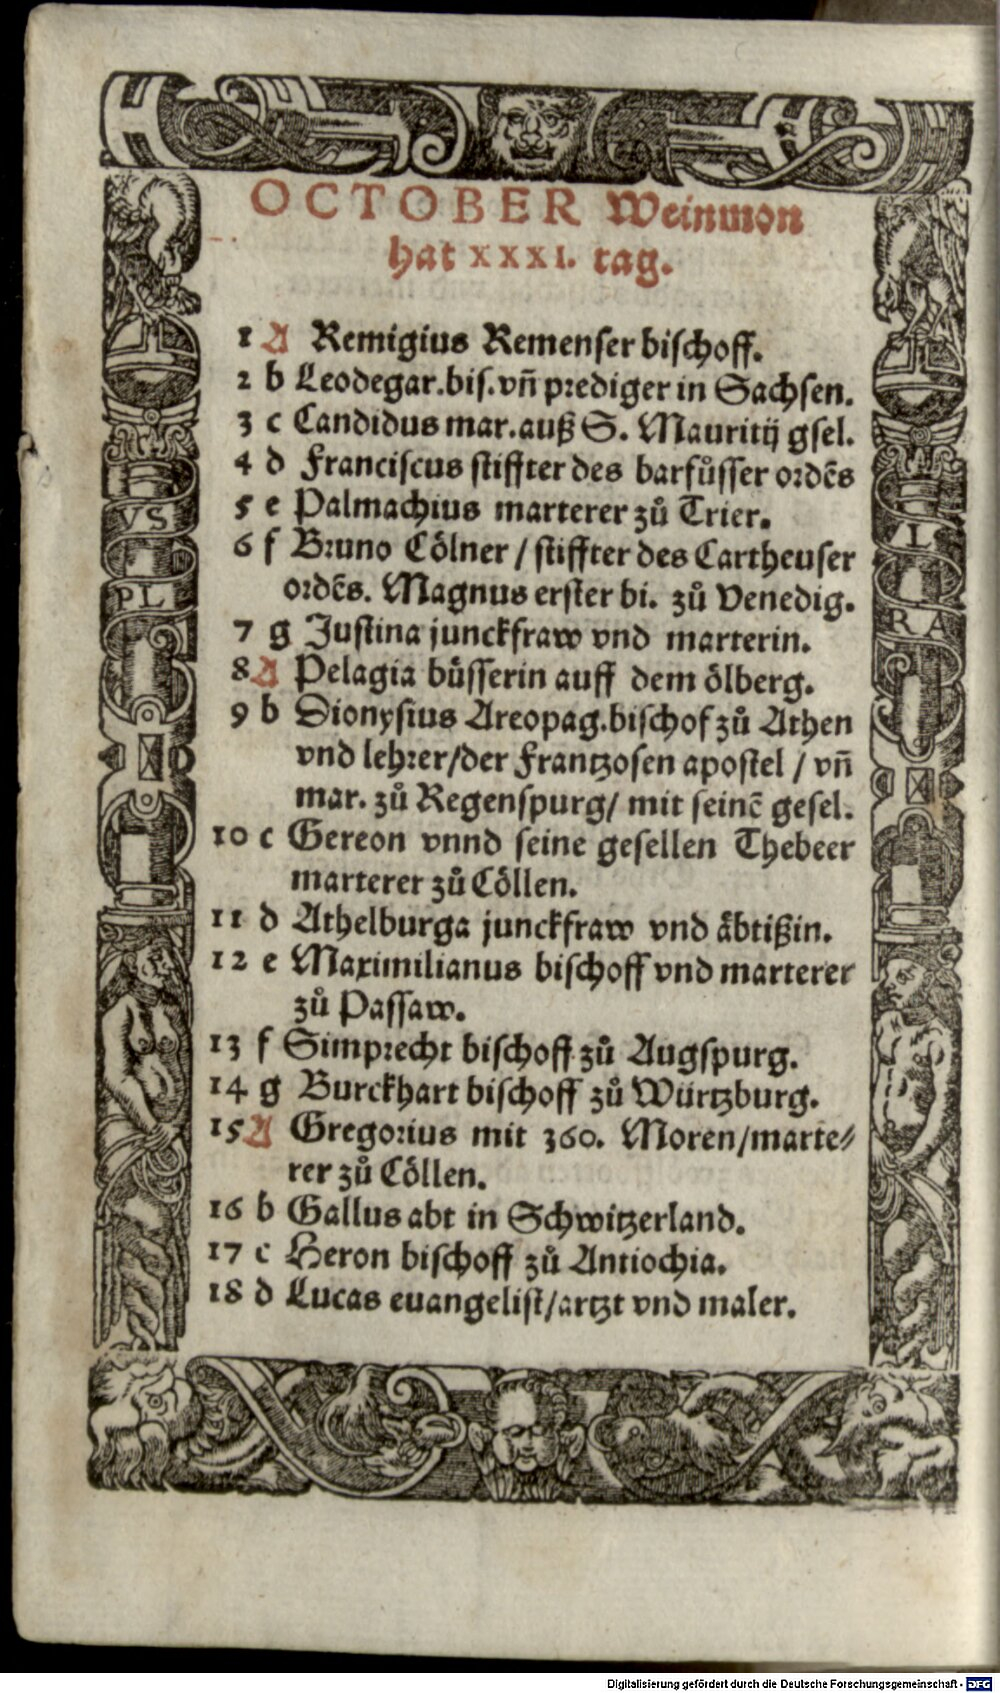 OCTOBER Weinmon
hat XXXI. tag.
1 A Remigius Remenser bischoff.
2 b Leodegar. bis. vñ prediger in Sachsen.
3 c Candidus mar. auß S. Mauritij gsel.
4 d Franciscus stiffter des barfůsser ordēs
5 e Palmachius marterer zů Trier.
6 f Bruno Cölner / stiffter des Cartheuser
ordēs. Magnus erster bi. zů Venedig.
7 g Justina junckfraw vnd marterin.
8 A Pelagia büsserin auff dem ölberg.
9 b Dionysius Areopag. bischof zů Athen
vnd lehrer/der Frantzosen apostel / vñ
mar. zů Regenspurg/ mit seinē gesel.
10 c Gereon vnnd seine gesellen Thebeer
marterer zů Cöllen.
11 d Athelburga junckfraw vnd äbtißin.
12 e Maximilianus bischoff vnd marterer
zů Passaw.
13 f Simprecht bischoff zů Augspurg.
14 g Burckhart bischoff zů Würtzburg.
15 A Gregorius mit 360. Moren/marte⸗
rer zů Cöllen.
16 b Gallus abt in Schwitzerland.
17 c Heron bischoff zů Antiochia.
18 d Lucas euangelist/artzt vnd maler.
VS
PL
L
RA
Digitalisierung gefördert durch die Deutsche Forschungsgemeinschaft - DFG